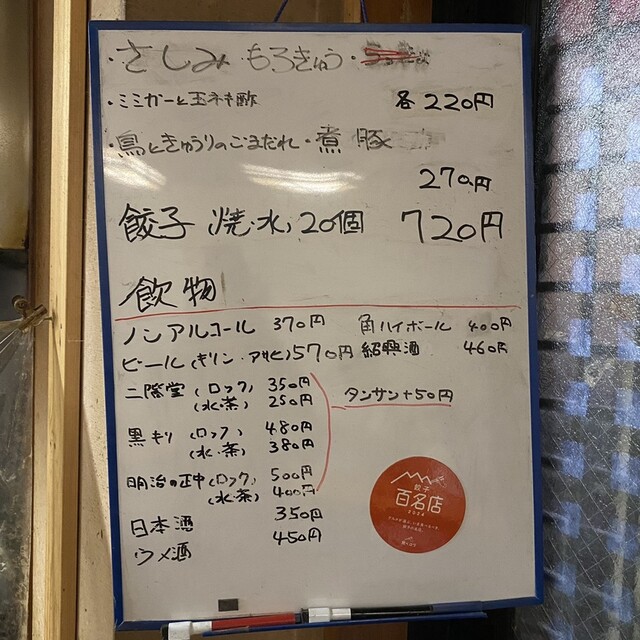 ・さしみ・もろきゅう・
・ミミガーと玉ネギ酢 各220円
・鳥ときゅうりのごまだれ・煮豚
270円
餃子(焼・水)20個 720円
飲物
ノンアルコール 370円 角ハイボール 400円
ビール(キリン・アサヒ)570円 紹興酒 460円
二階堂(ロック) 350円
(水・茶) 250円 タンサン+50円
黒キリ(ロック) 480円
(水・茶) 380円
明治の正中(ロック) 500円
(水・茶) 400円
日本酒 350円
ウメ酒 450円
餃子
百名店
2024
食べログ